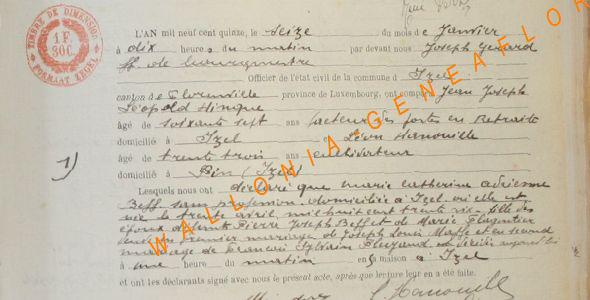 TIMBRE DE DIMENSION
1 F.
30C.
FORMAT REGEL
L'AN mil neuf cent quinze, le Seize du mois de Janvier
à dix heures du matin par devant nous Joseph Gérard
ff. de bourgmestre
Officier de l'état civil de la commune d Izel
canton de Florenville province de Luxembourg, ont comparu Jean Joseph
Léopold Hinque
âgé de soixante sept ans facteur des postes en Retraite
domicilié à Izel et Léon Hanouille
âgé de trente trois ans cultivateur
domicilié à Pin (Izel)
1)
Lesquels nous ont déclaré que marie catherine adrienne
Beff sans profession domiciliée à Izel où elle est
née le trente avril mil huit cent trente six fille des
époux défunts Pierre Joseph Beff et de Marie
en premier mariage de Joseph Louis et en second
mariage de François Sylvain est décédée aujourd'hui
à une heure du matin en maison à Izel
et ont les déclarants signé avec nous le présent acte, après que lecture leur en a été faite.
L. Hanouille
WALLONIA-GENEAFLOR